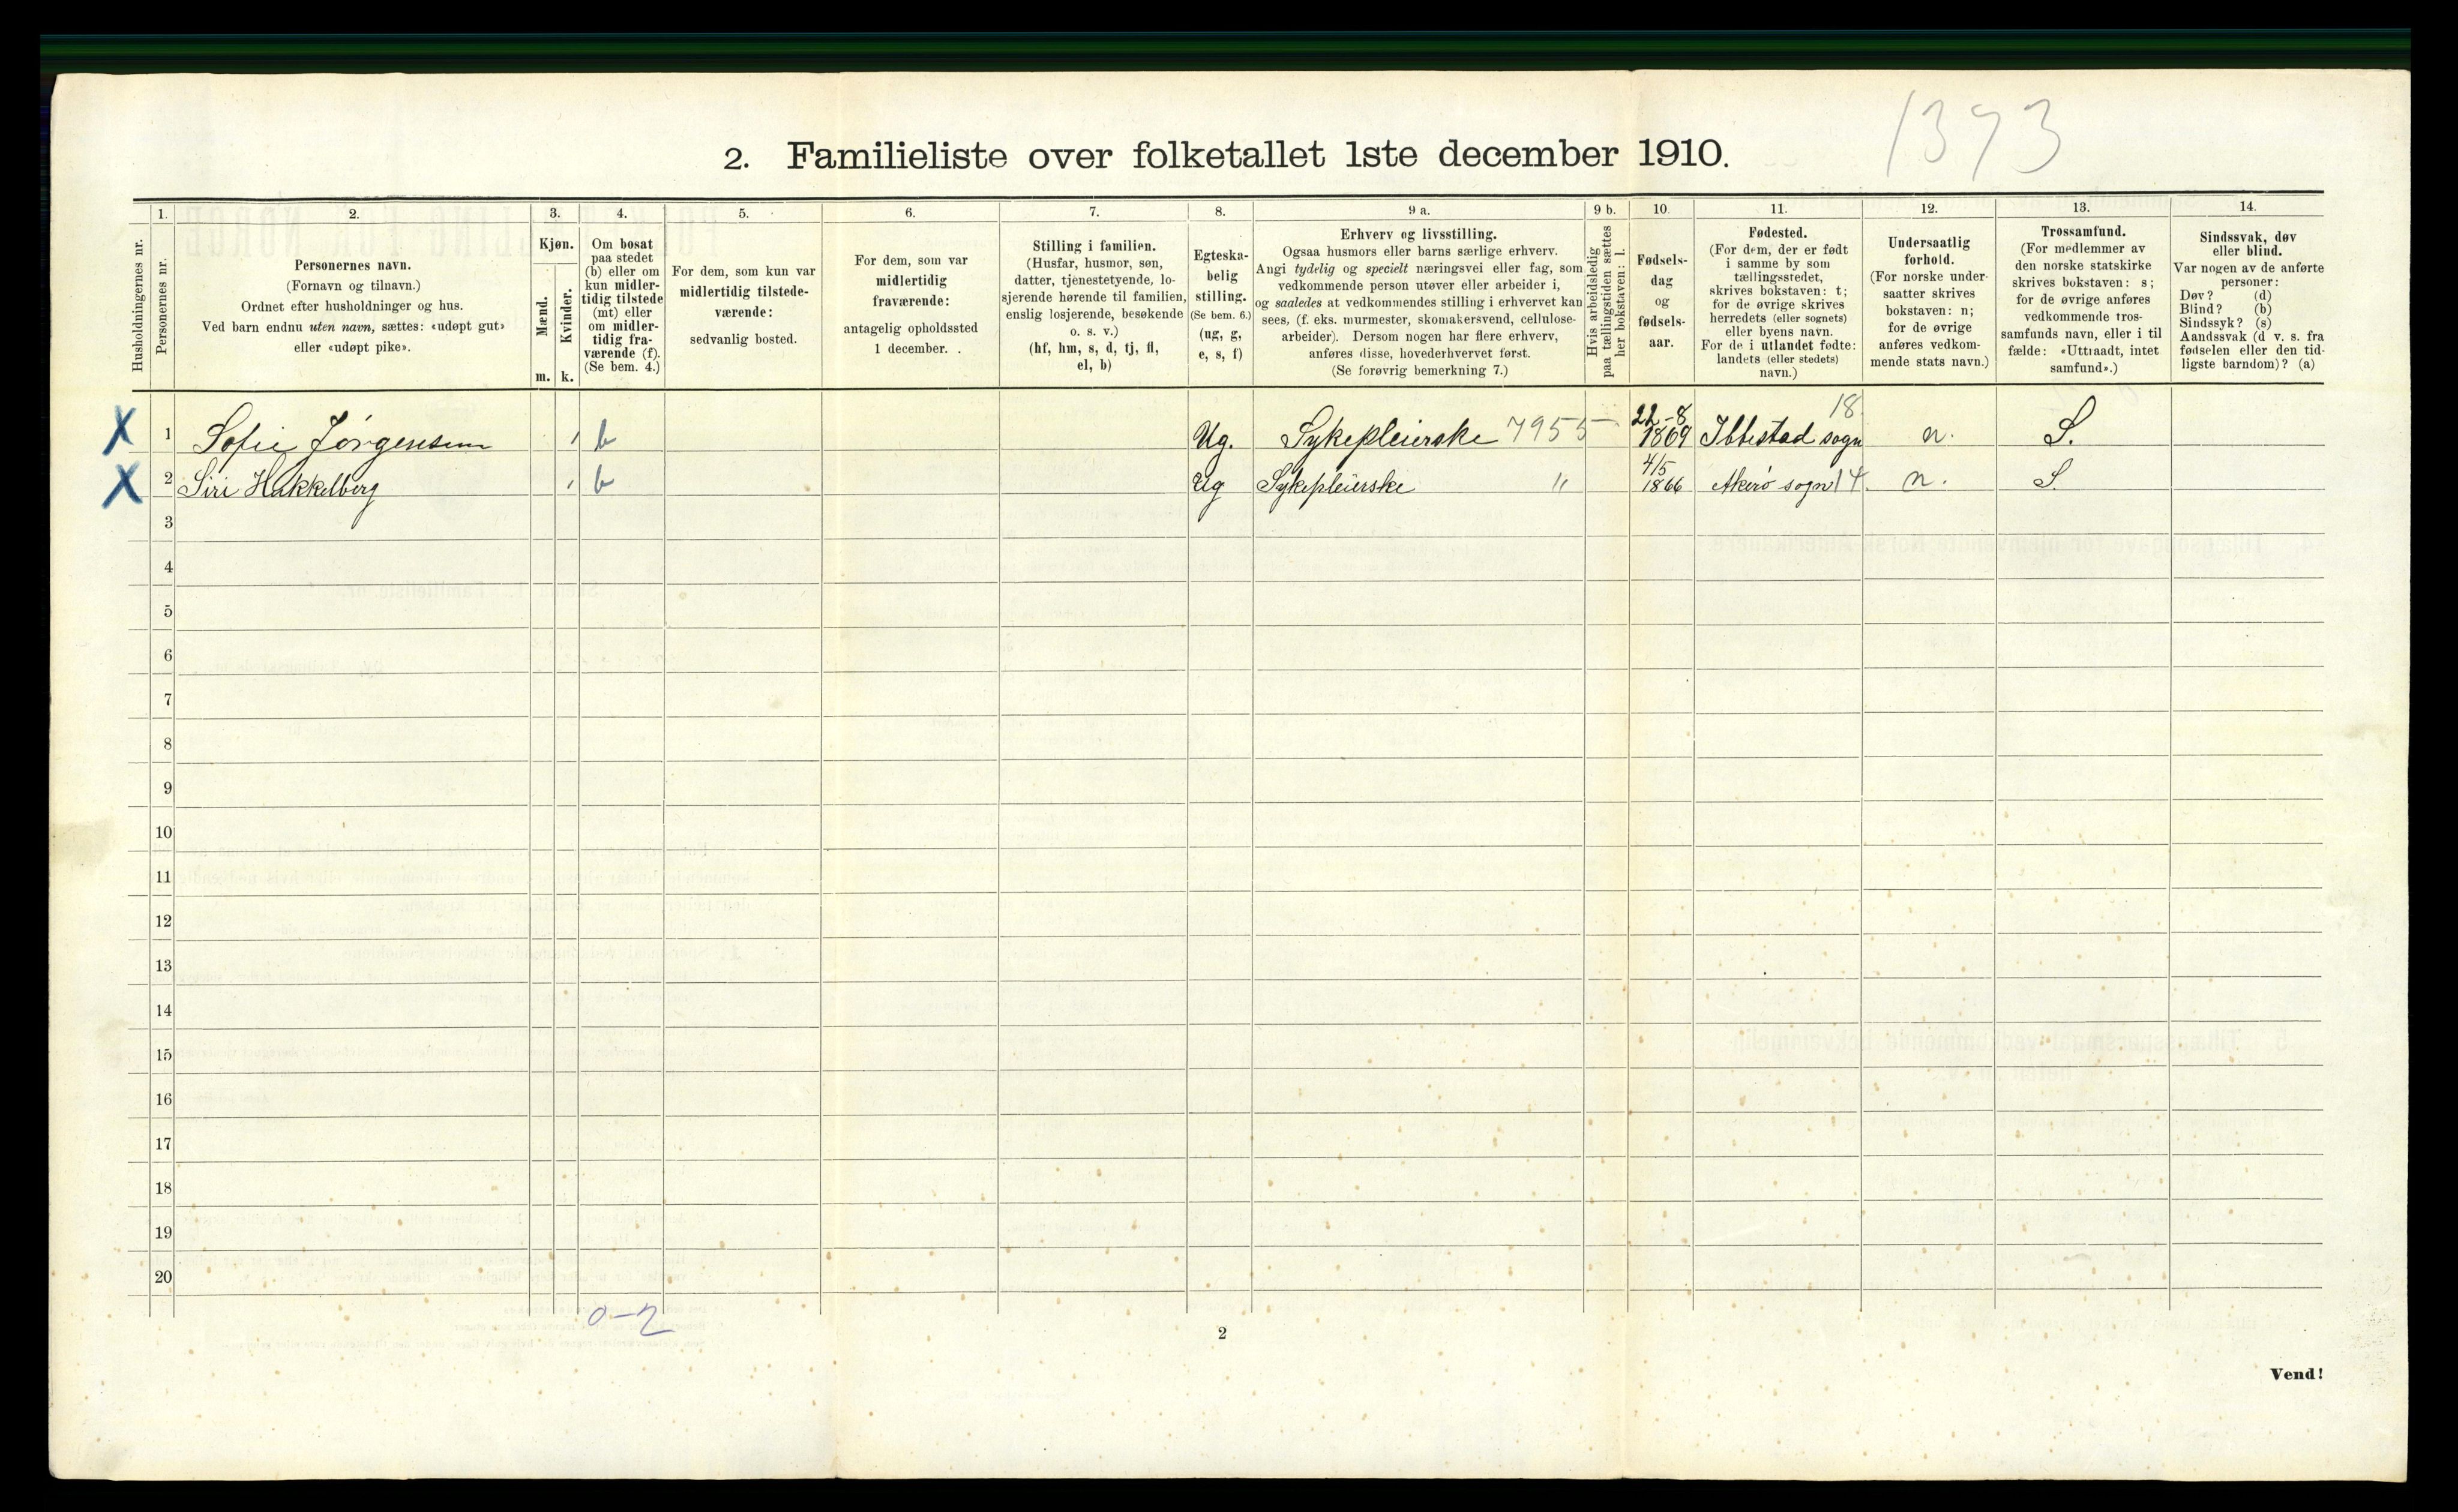 1373
2. Familieliste over folketallet 1ste december 1910.
1. 2. 3. 4. 5. 6. 7. 8. 9 a. 9 b. 10. 11. 12. 13. 14.
Husholdningernes nr.
Personernes nr.
Personernes navn.
(Fornavn og tilnavn.)
Ordnet efter husholdninger og hus.
Ved barn endnu uten navn, sættes: «udøpt gut»
eller «udøpt pike».
Kjøn.
Mænd.
Kvinder.
m. k.
Om bosat
paa stedet
(b) eller om
kun midler-
tidig tilstede
(mt) eller
om midler-
tidig fra-
værende (f).
(Se bem. 4.)
For dem, som kun var
midlertidig tilstede-
værende:
sedvanlig bosted.
For dem, som var
midlertidig
fraværende:
antagelig opholdssted
1 december.
Stilling i familien.
(Husfar, husmor, søn,
datter, tjenestetyende, lo-
sjerende hørende til familien,
enslig losjerende, besøkende
o. s. v.)
(hf, hm, s, d, tj, fl,
el, b)
Egteska-
belig
stilling.
(Se bem. 6.)
(ug, g,
e, s, f)
Erhverv og livsstilling.
Ogsaa husmors eller barns særlige erhverv.
Angi tydelig og specielt næringsvei eller fag, som
vedkommende person utøver eller arbeider i,
og saaledes at vedkommendes stilling i erhvervet kan
sees, (f. eks. murmester, skomakersvend, cellulose-
arbeider). Dersom nogen har flere erhverv,
anføres disse, hovederhvervet først.
(Se forøvrig bemerkning 7.)
Hvis arbeidsledig
paa tællingstiden sættes
her bokstaven: l.
Fødsels-
dag
og
fødsels-
aar.
Fødested.
(For dem, der er født
i samme by som
tællingsstedet,
skrives bokstaven: t;
for de øvrige skrives
herredets (eller sognets)
eller byens navn.
For de i utlandet fødte:
landets (eller stedets)
navn.)
Undersaatlig
forhold.
(For norske under-
saatter skrives
bokstaven: n;
for de øvrige
anføres vedkom-
mende stats navn.)
Trossamfund.
(For medlemmer av
den norske statskirke
skrives bokstaven: s;
for de øvrige anføres
vedkommende tros-
samfunds navn, eller i til
fælde: «Uttraadt, intet
samfund».)
Sindssvak, døv
eller blind.
Var nogen av de anførte
personer:
Døv? (d)
Blind? (b)
Sindssyk? (s)
Aandssvak (d v. s. fra
fødselen eller den tid-
ligste barndom)? (a)
X 1 Sofie Jørgensen 1 b Ug. Sykepleierske 7955 — 22-8 1869 Ibbestad sogn 18 n. S.
X 2 Siri Hakkelberg 1 b Ug Sykepleierske " 4/5 1866 Akerø sogn 14. n. S.
3
4
5
6
7
8
9
10
11
12
13
14
15
16
17
18
19
20
0-2
2
Vend!